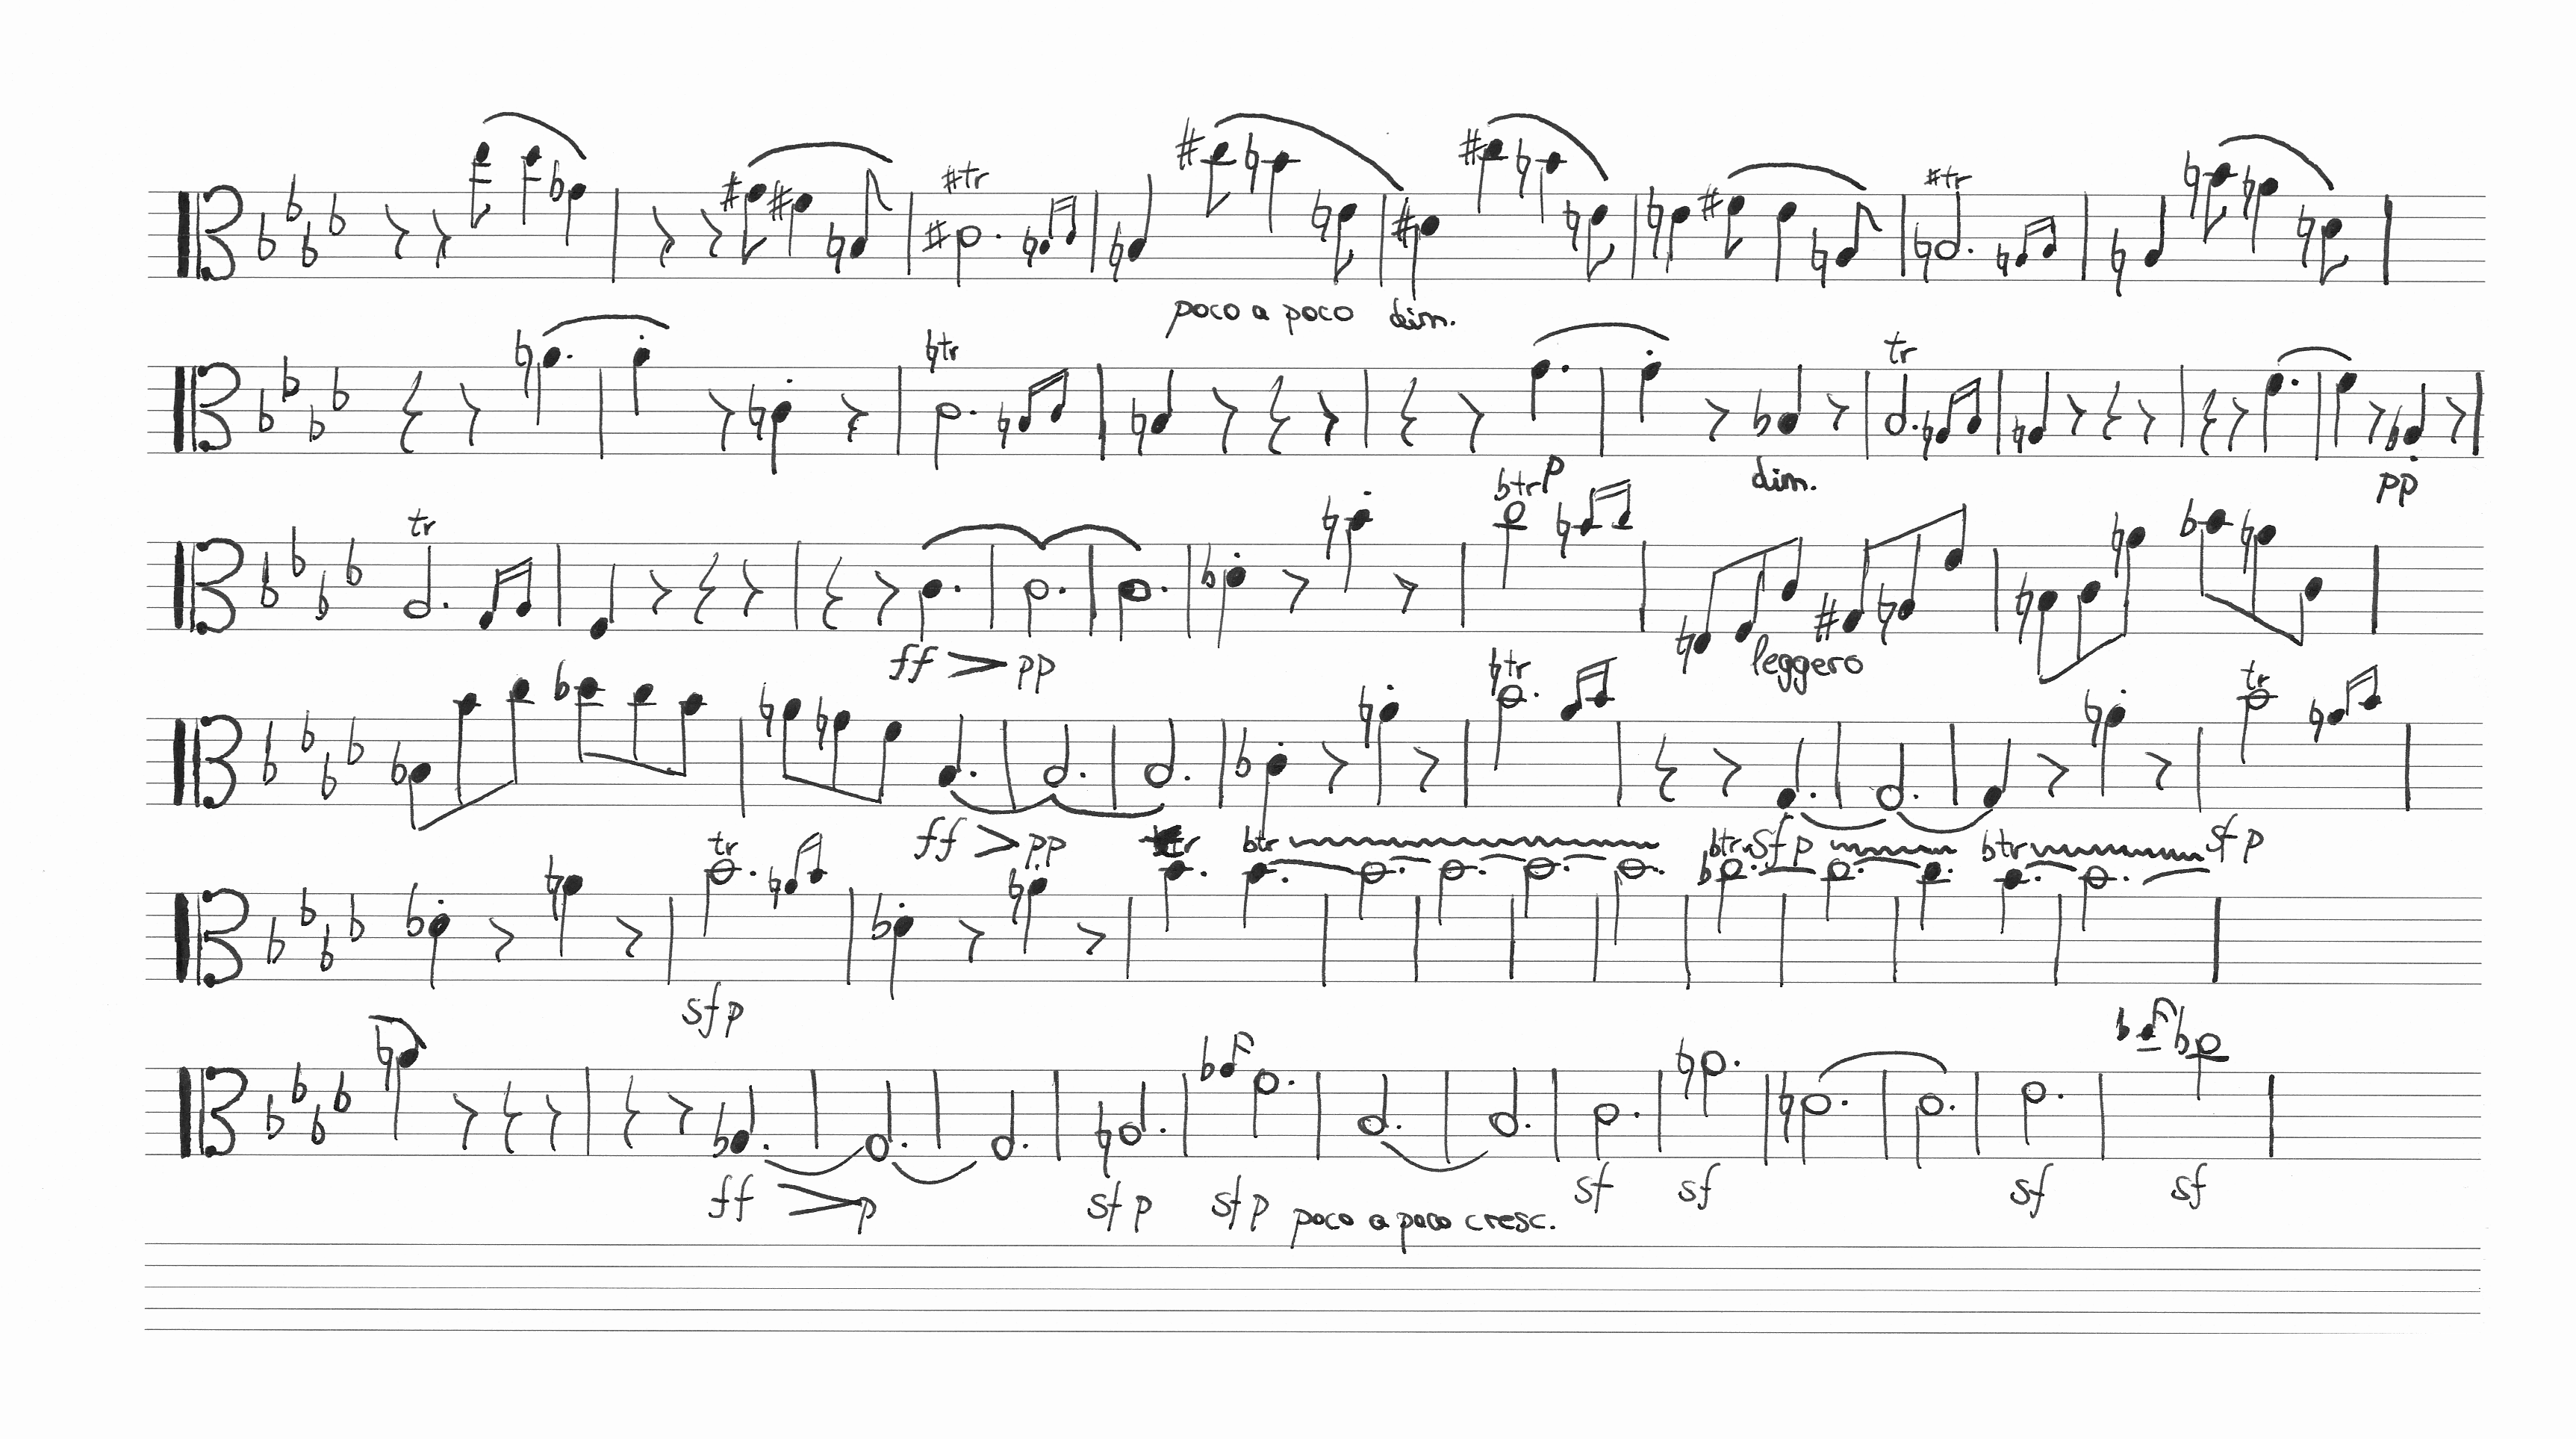 tr tr
poco a poco dim.
tr tr
p dim. pp
tr tr
ff pp leggero
tr tr
ff pp sfp sfp
tr tr tr tr tr
sfp
ff p sfp sfp poco a poco cresc. sf sf sf sf